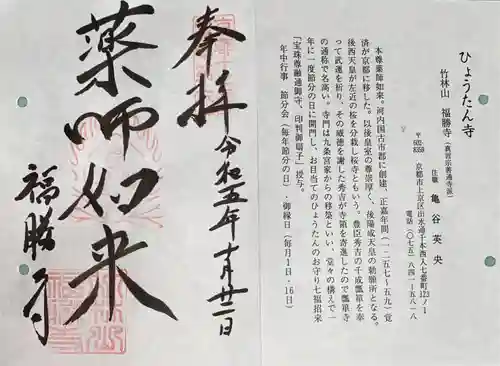 奉拝
令和五年十月廿二日
薬師如来
福勝寺
ひょうたん寺
竹林山　福勝寺（真言宗善通寺派）
住職　亀谷英央
〒602-8359　京都市上京区出水通千本西入七番町323ノ1
電話（〇七五）八四一ー五八一八
本尊薬師如来。河内国古市郡に創建、正嘉年間（一二五七〜五九）覚
済が京都に移した。以後皇室の尊崇厚く、後陽成天皇の勅願所となる。
後西天皇が左近の桜を分栽し桜寺ともいう。豊臣秀吉の千成瓢箪を奉
って武運を祈り、その威徳を謝した秀吉が寺領を寄進したので瓢箪寺
の通称で名高い。寺門は九条宮家からの移築といい、堂々の構えで一
年に一度節分の日に開門し、お目当てのひょうたんのお守り七福招来
「宝珠尊融通御寺、印判御扇子」授与。
年中行事　節分会（毎年節分の日）・御縁日（毎月1日・16日）